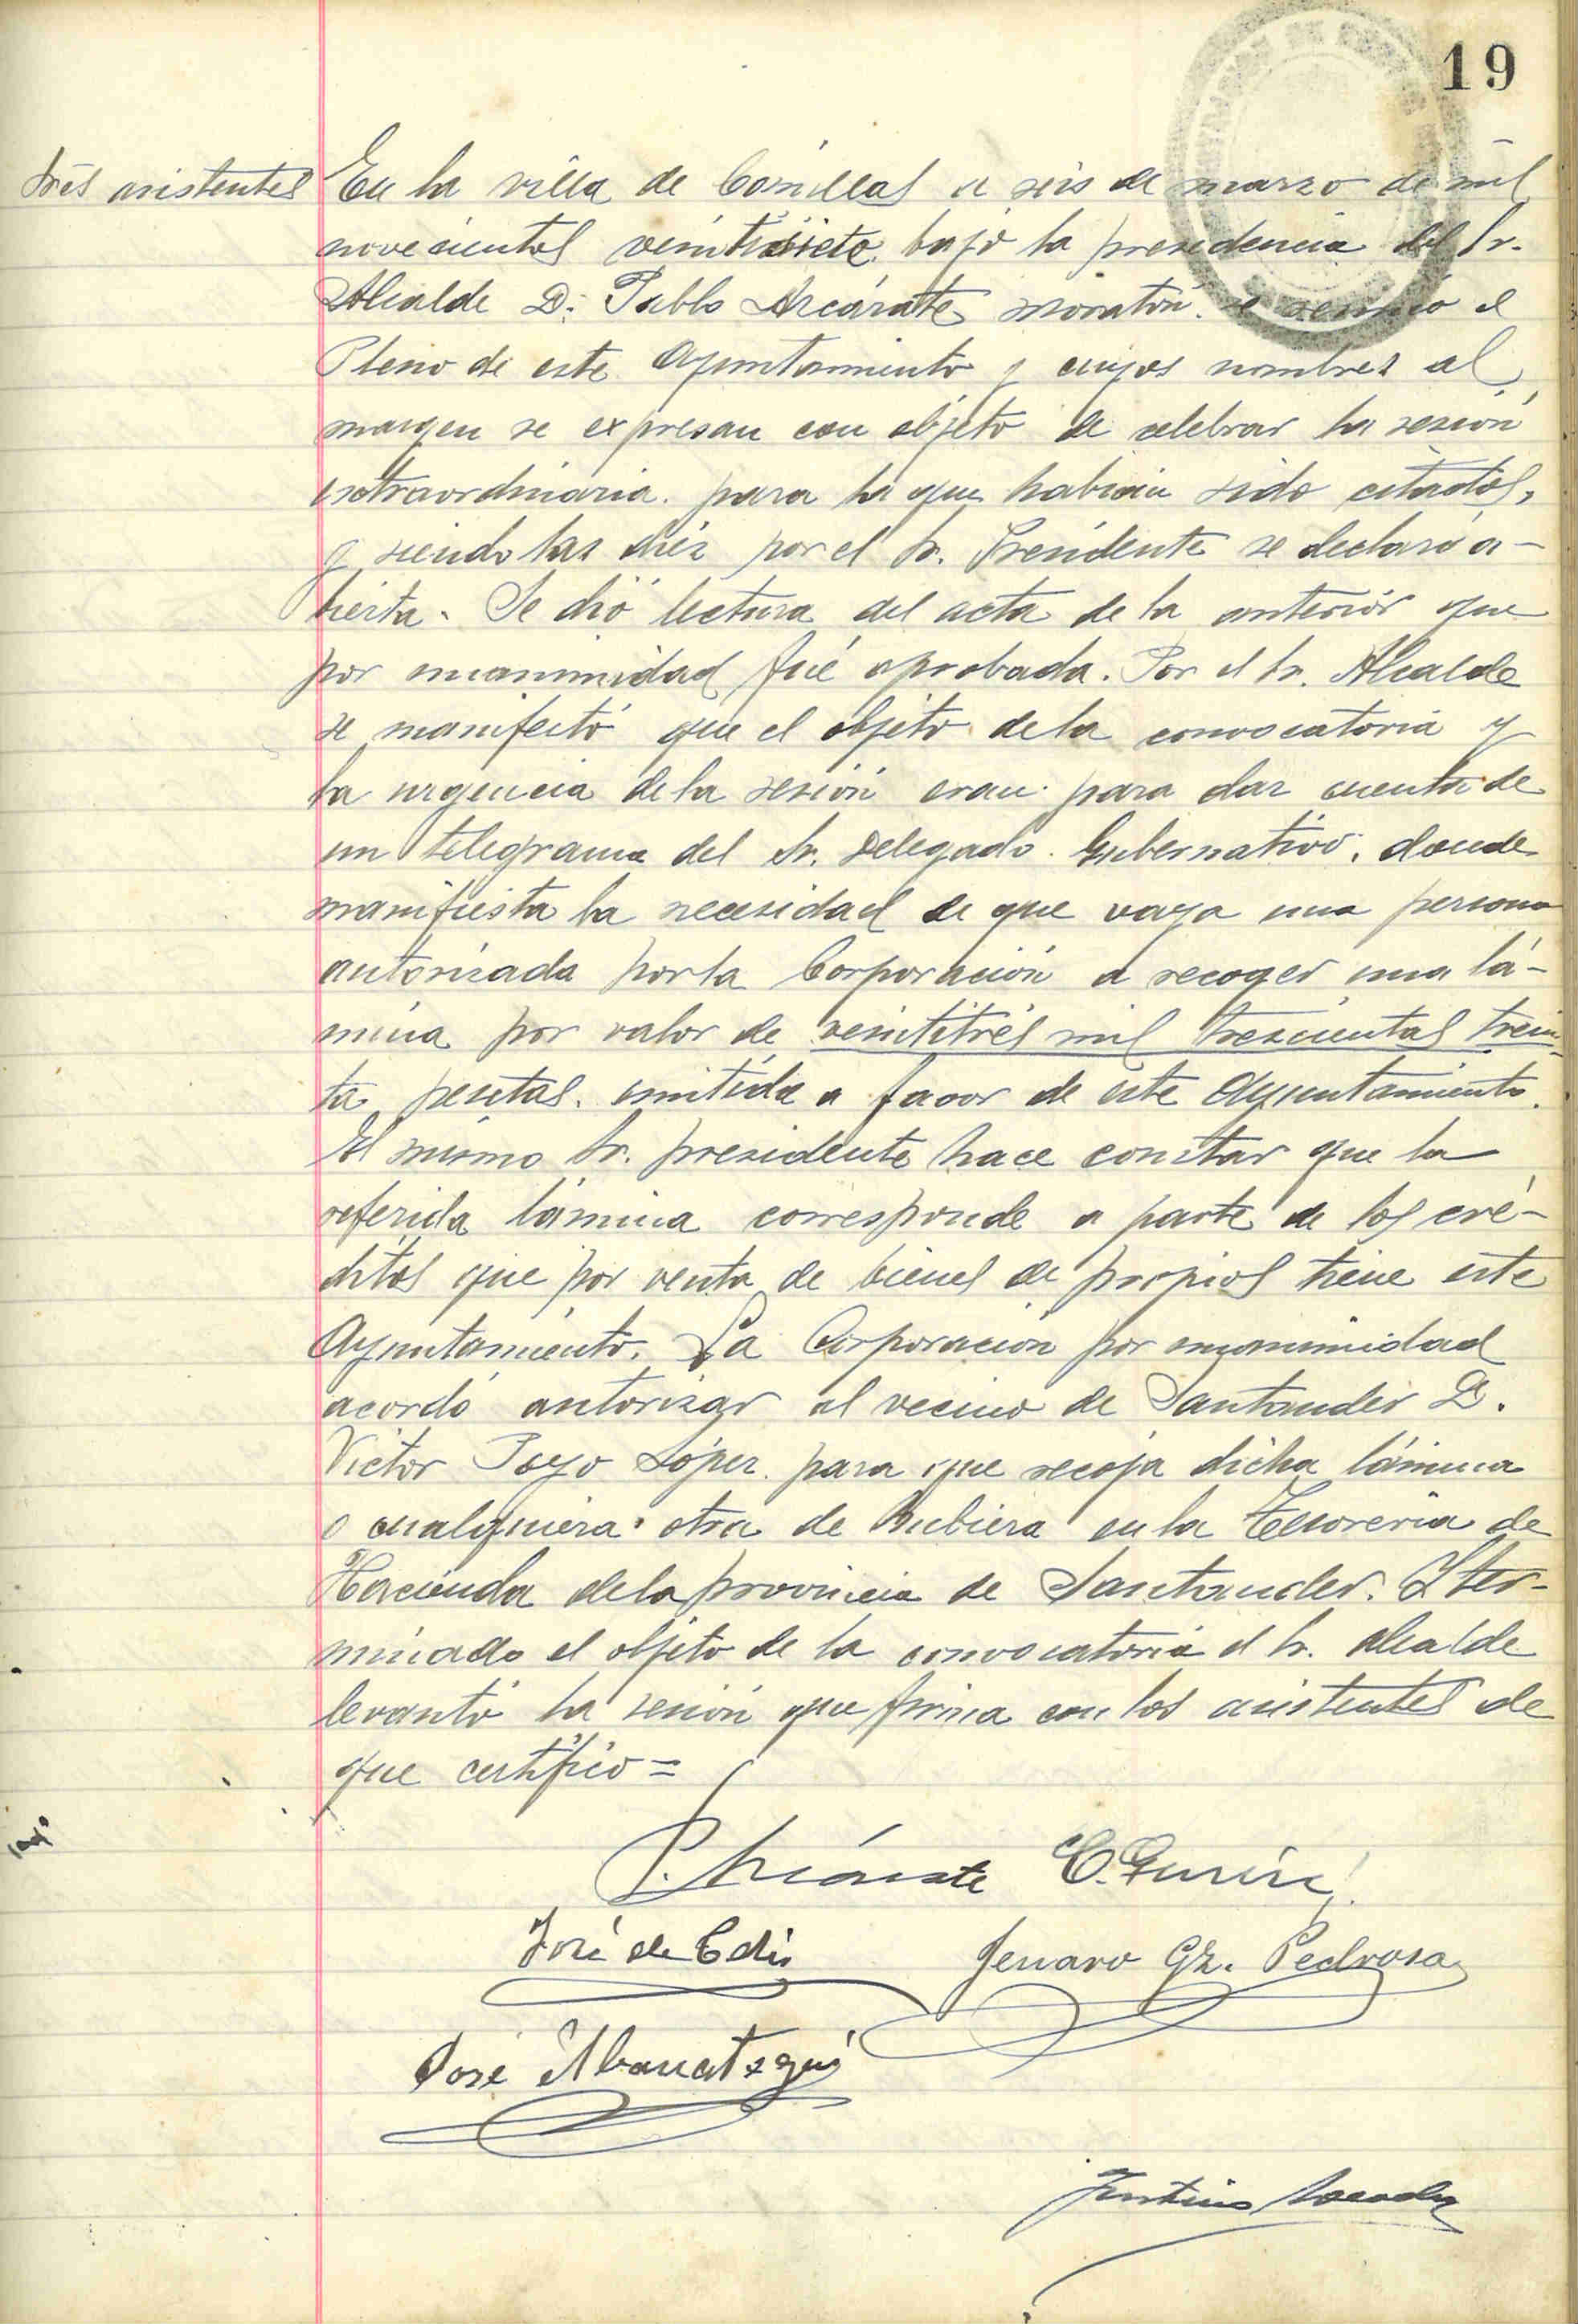 19
Sres asistentes
En la villa de Comillas a seis de marzo de mil
novecientos veintisiete bajo la presidencia del Sr.
Alcalde D. Pablo Arcárate Monatón se reunió el
Pleno de este Ayuntamiento y cuyos nombres al
margen se expresan con objeto de celebrar la sesión
extraordinaria para la que habían sido citados,
y siendo las diéz por el Sr. Presidente se declaró a-
bierta. Se dió lectura del acta de la anterior que
por unanimidad fué aprobada. Por el Sr. Alcalde
se manifestó que el objeto de la convocatoria y
la urgencia de la sesión eran para dar cuenta de
un telegrama del Sr. Delegado Gubernativo, donde
manifiesta la necesidad de que vaya una persona
autorizada por la Corporación a recoger una lá-
mina por valor de veintitrés mil trescientas trein-
ta pesetas emitida a favor de este Ayuntamiento.
El mismo Sr. presidente hace constar que la
referida lámina corresponde a parte de los cré-
ditos que por venta de bienes de propios tiene este
Ayuntamiento. La Corporación por unanimidad
acordó autorizar al vecino de Santander D.
Victor Poyo López para que recoja dicha lámina
o cualquiera otra de hubiera en la Tesorería de
Hacienda de la provincia de Santander. Y ter-
minado el objeto de la convocatoria el Sr. Alcalde
levantó la sesión que firma con los asistentes de
que certifico =
P. Arcárate
José de Celis Jenaro Gz. Pedrosa
José Abarrategui